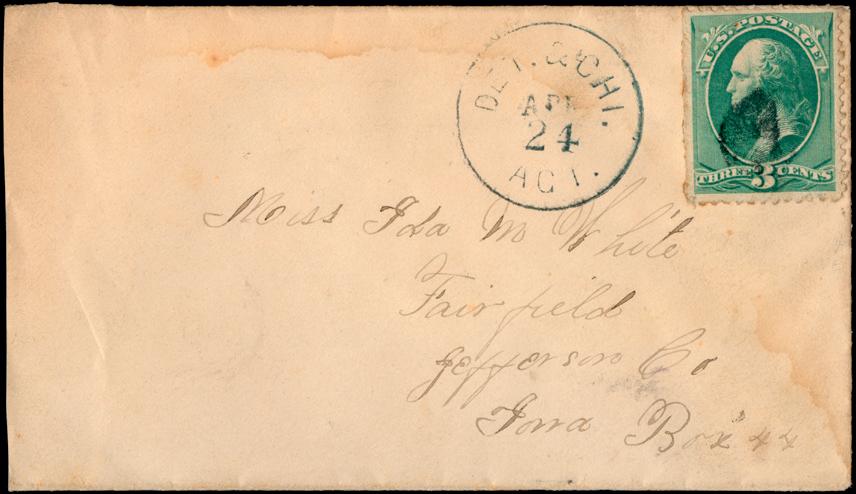 U.S. POSTAGE
THREE 3 CENTS
DET. & CHI.
APR
24
AGT.
Miss Ida M White
Fairfield
Jefferson Co
Iowa Box 44